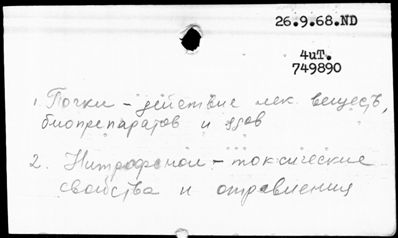 26.9.68.ND
4иТ.
749890
1. Почки – действие лек. веществ,
биопрепаратов и ядов
2. Нитрофенол – токсические
свойства и отравления